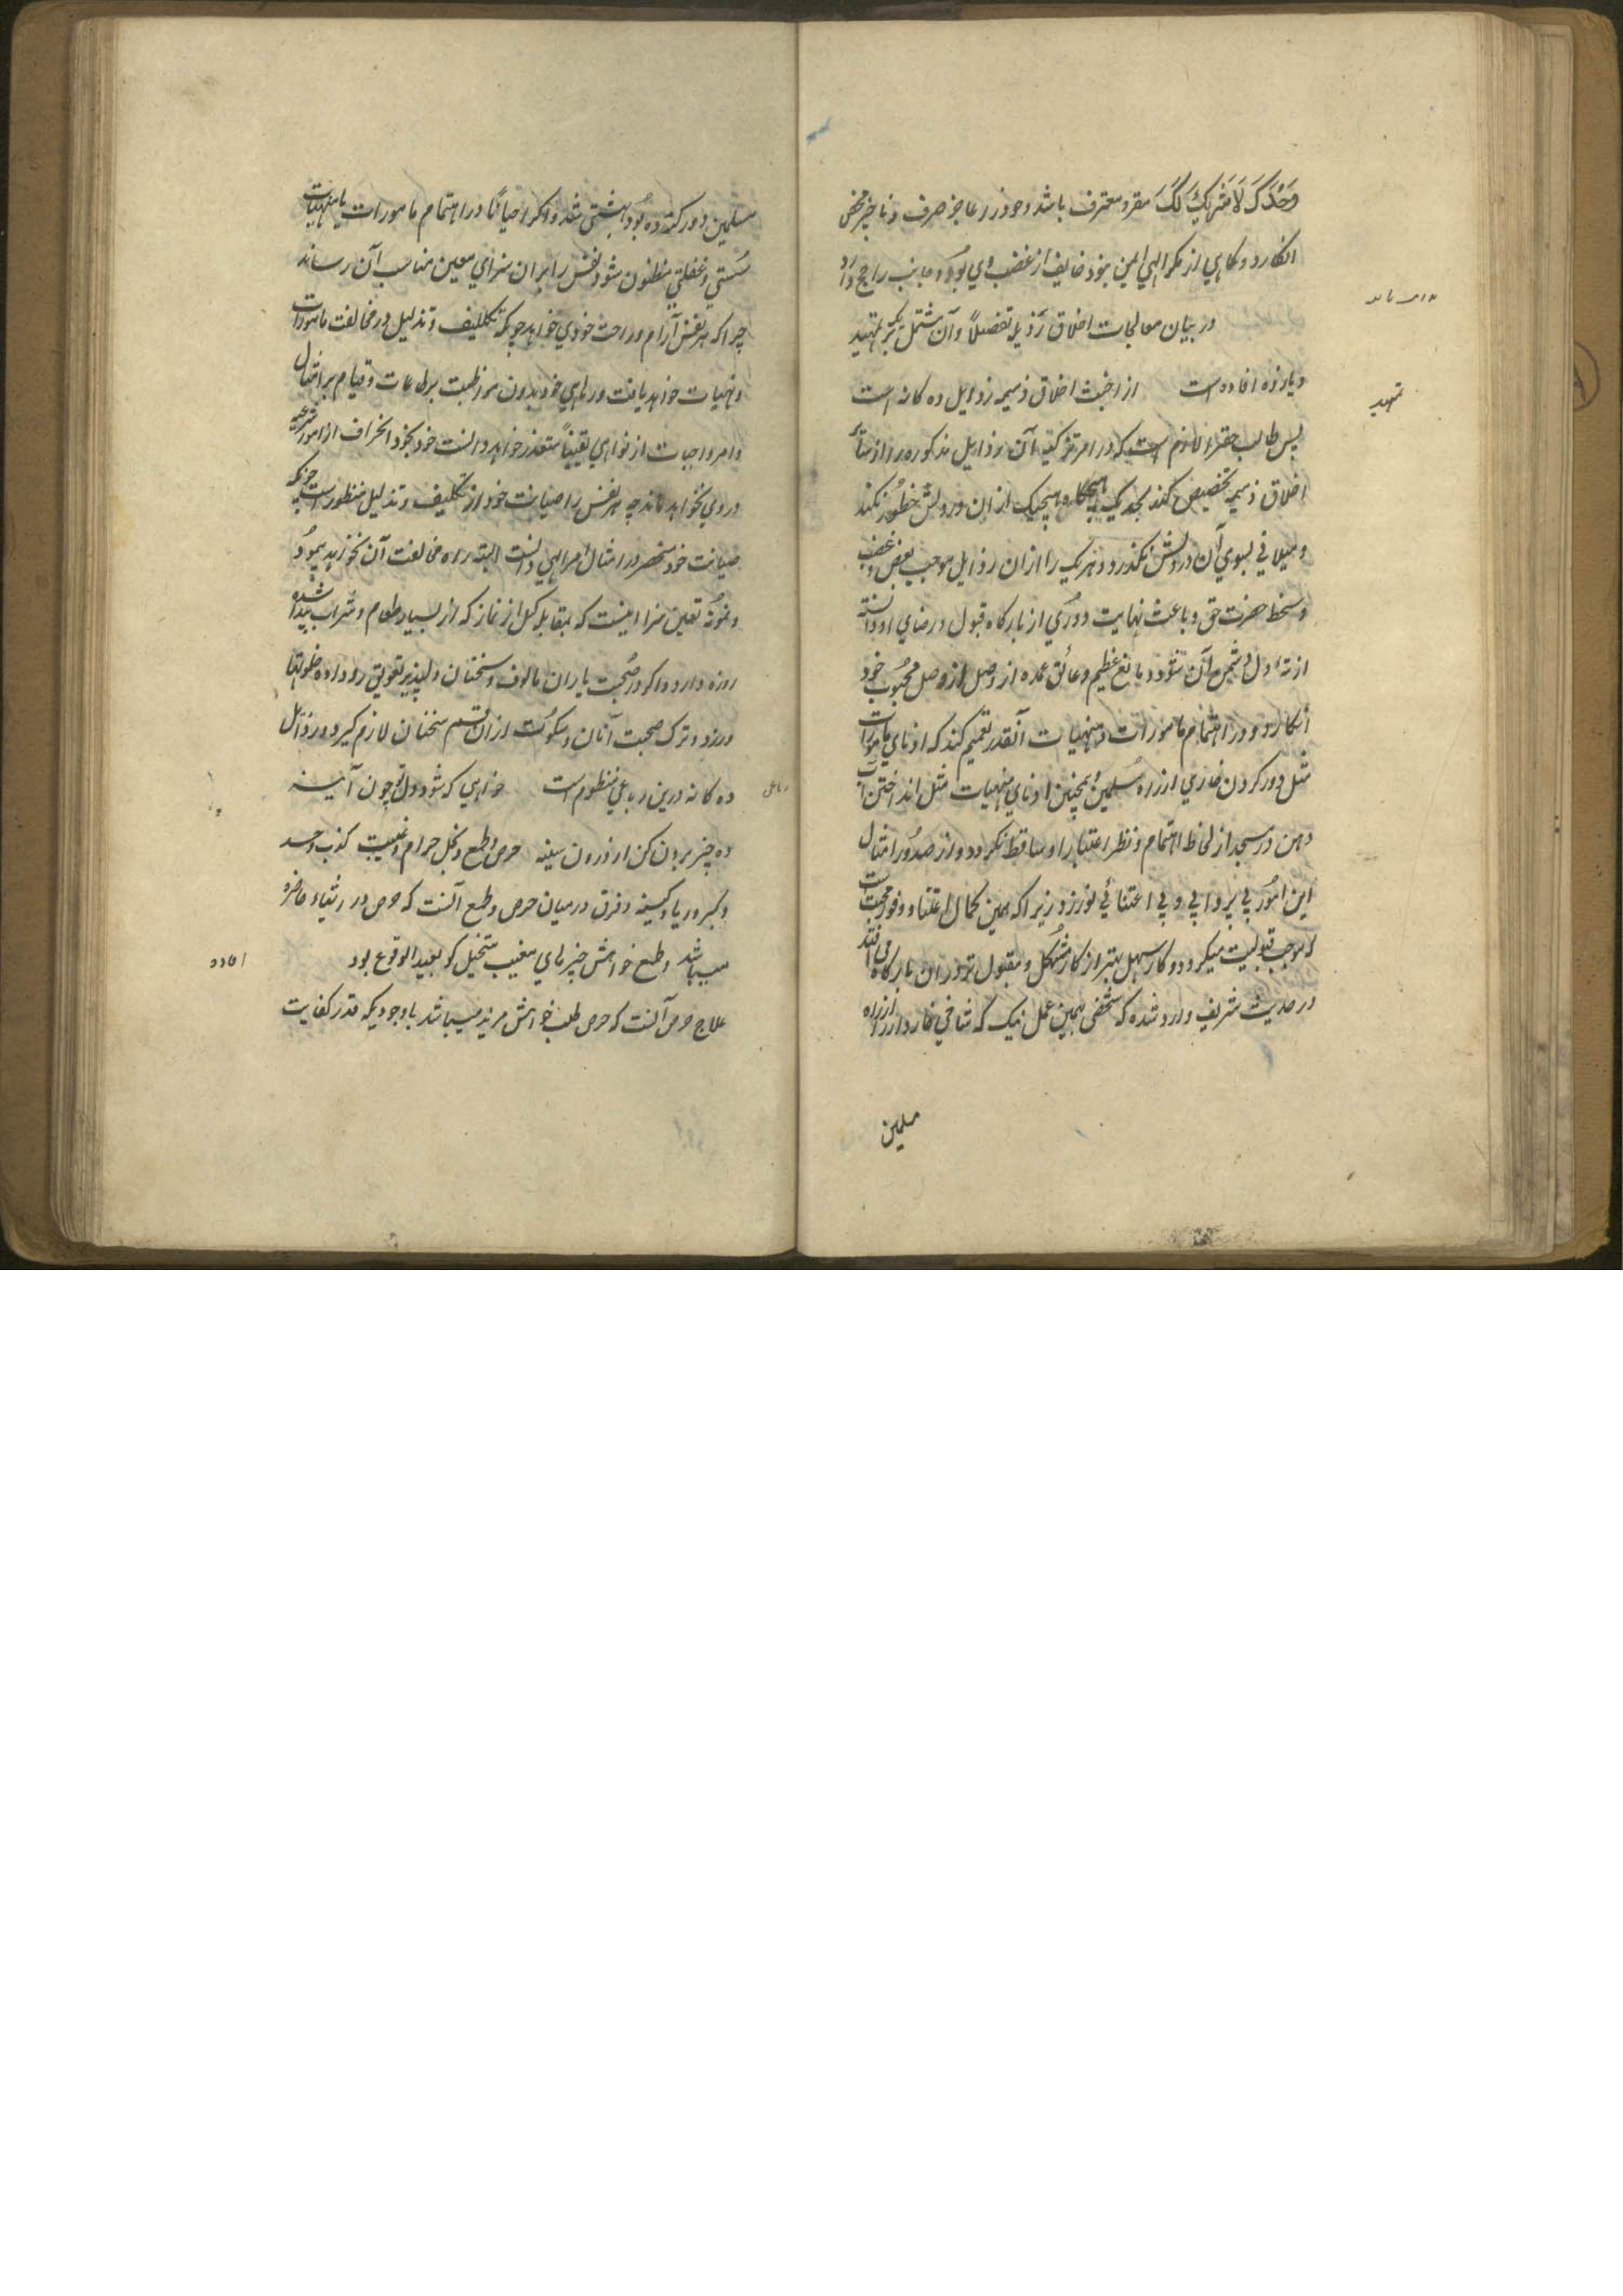 وَحْدَكَ لَا شَرِیكَ لَكَ مقر و معترف باشد و خود را عاجز صرف و ناچیز محض
انگارد و گاهی از مکر الهی ایمن نبود خایف از غضب وی بود و جانب را راجح دارد
در بیان معالجات اخلاق رذیله تفصیلاً و آن مشتمل بر یک تمهید
تمهید
و یازده افاده است از اخبث اخلاق ذمیمه رذایل ده گانه است
پس طالب حق را لازم است که در امر تزکیه آن رذایل مذکوره را از سائر
اخلاق ذمیمه تخصیص کند بحدیکه هیچگاه هیچیک ازان در دلش خطور نکند
و میلانی بسوی آن در دلش نگذرد و هر یک را ازان رذایل موجب بغض و غضب
و سخط حضرت حق و باعث نهایت دوری از بارگاه قبول و رضای او دانسته
از ته دل دشمن آن شود و مانع عظیم و عائق عمده از وصل محبوب خود
انگارد و در اهتمام مامورات و منهیات آنقدر تعمیم کند که ادنای مامورات
مثل دور کردن خاری از راه مسلمین و همچنین ادنای منهیات مثل انداختن آب
دهن در مسجد از لحاظ اهتمام و نظر اعتبار او ساقط نگردد و از صدور امثال
این امور بی پروایی و بی اعتنائی نورزد زیرا که همین کمال اعتنا و وفور محبت
موجب قبولیت میگردد و کار سهل بهتر از کار مشکل و مقبول تر در ان بارگاه می افتد
در حدیث شریف وارد شده که شخصی بهمین عمل نیک که شاخی خاردار از راه
مسلمین
مسلمین دور کرده بود بهشتی شد و اگر احیاناً در اهتمام مامورات یا منهیات
سستی و غفلتی مظنون شود نفس را بران سزای معین مناسب آن رساند
چرا که هر نفس آرام و راحت خودی خواهد چونکه تکلیف و تذلیل در مخالفت مامورات
و نهیات خواهد یافت و رهایی خود بدون مواظبت بر طاعات و قیام بر امتثال
اوامر واجبات از نواهی یقیناً متعذر خواهد دانست خود بخود انحراف از امور شرعیه
در وی نخواهد ماند چه هر نفس را صیانت خود از تکلیف و تذلیل منظور است چونکه
صیانت خود منحصر در امتثال امر الهی دانست البته راه مخالفت آن نخواهد پیمود
و نمونه تعیین سزا اینست که بمقابله کسل از نماز که از بسیار طعام و شراب پیدا شده
روزه دارد و اگر در صحبت یاران مالوف و سخنان دلپذیر تعویق رو داده خلوتها
ورزد و ترک صحبت آنان و سکوت ازان قسم سخنان لازم گیرد و رذایل
رباعی
ده گانه درین رباعی منظوم است خواهی که شود دل تو چون آیینه
ده چیز برون کن از درون سینه حرص و طمع و بخل و حرام و غیبت کذب و حسد
و کبر و ریا و کینه و فرق درمیان حرص و طمع آنست که حرص در اشیاء حاضره
میباشد و طمع خواهش چیزهای مغیب متخیل گو بعید الوقوع بود
افاده
علاج حرص آنست که حرص طلب خواهش مزید میباشد باوجودیکه قدر کفایت